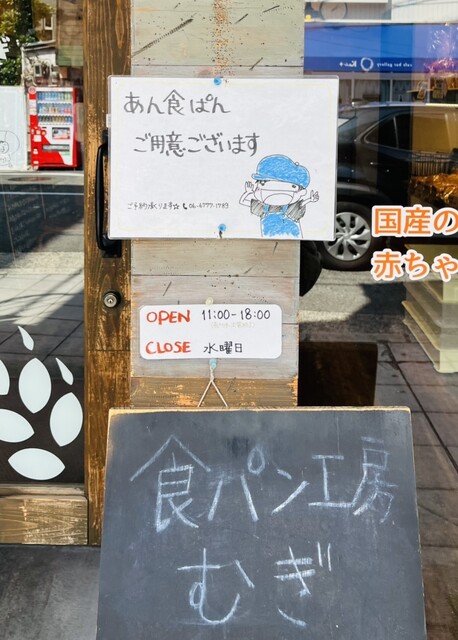 あん食ぱん
ご用意ございます
ご予約承ります☆ 📞06-6777-1783
cafe bar gallery
国産の
赤ちゃ
OPEN 11:00-18:00
CLOSE 水曜日
食パン工房
むぎ